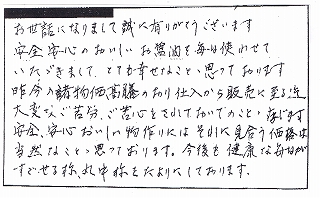 お世話になりまして誠に有りがとうございます
安全安心のおいしいお醤油を毎日使わせて
いただきまして、とても幸せなことと思っております
昨今の諸物価高騰のおり仕入から販売に至る迄
大変なご苦労、ご苦心をされておいでのことと存じます
安全、安心おいしい物作りにはそれに見合う価格は
当然なことと思っております。今後も健康な毎日が
すごせる様、丸中様をたよりにしております。